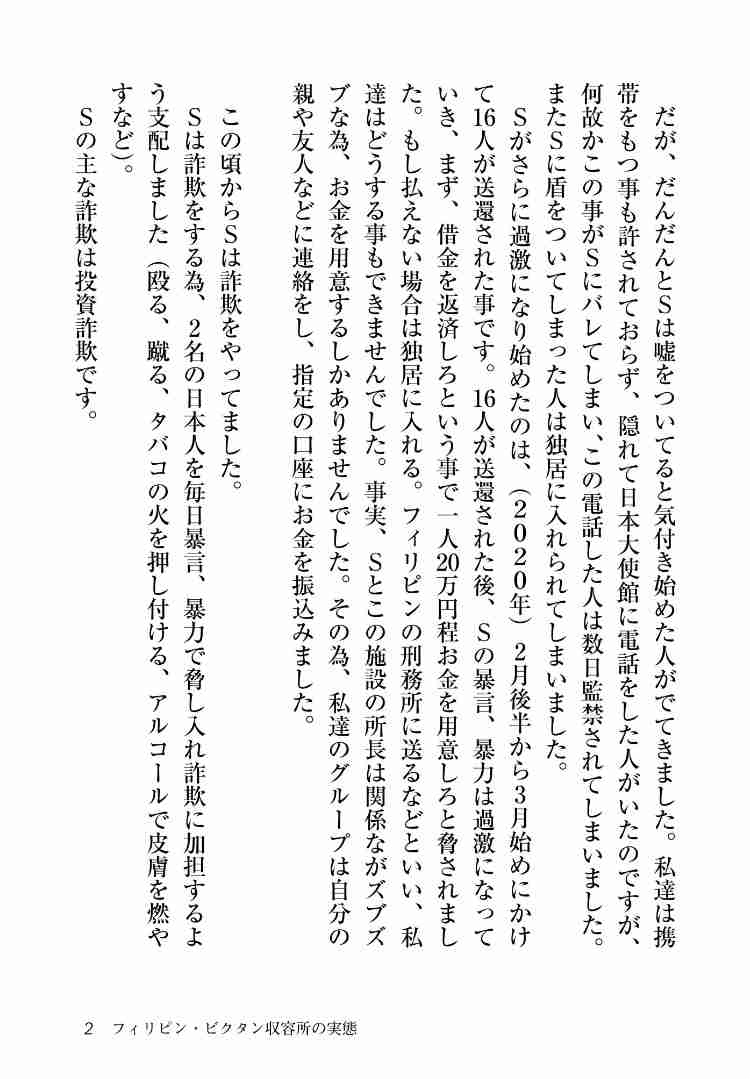 だが、だんだんとSは嘘をついてると気付き始めた人がでてきました。私達は携
帯をもつ事も許されておらず、隠れて日本大使館に電話をした人がいたのですが、
何故かこの事がSにバレてしまい、この電話した人は数日監禁されてしまいました。
またSに盾をついてしまった人は独居に入れられてしまいました。
Sがさらに過激になり始めたのは、（2020年）2月後半から3月始めにかけ
て16人が送還された事です。16人が送還された後、Sの暴言、暴力は過激になって
いき、まず、借金を返済しろという事で一人20万円程お金を用意しろと脅されまし
た。もし払えない場合は独居に入れる。フィリピンの刑務所に送るなどといい、私
達はどうする事もできませんでした。事実、Sとこの施設の所長は関係ながズブズ
ブな為、お金を用意するしかありませんでした。その為、私達のグループは自分の
親や友人などに連絡をし、指定の口座にお金を振込みました。
この頃からSは詐欺をやってました。
Sは詐欺をする為、2名の日本人を毎日暴言、暴力で脅し入れ詐欺に加担するよ
う支配しました（殴る、蹴る、タバコの火を押し付ける、アルコールで皮膚を燃や
すなど）。
Sの主な詐欺は投資詐欺です。
2 フィリピン・ビクタン収容所の実態